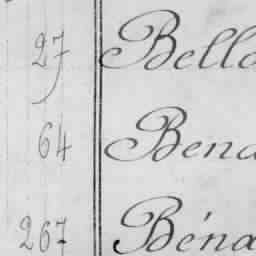 27 Bella
64 Bena
267 Béna